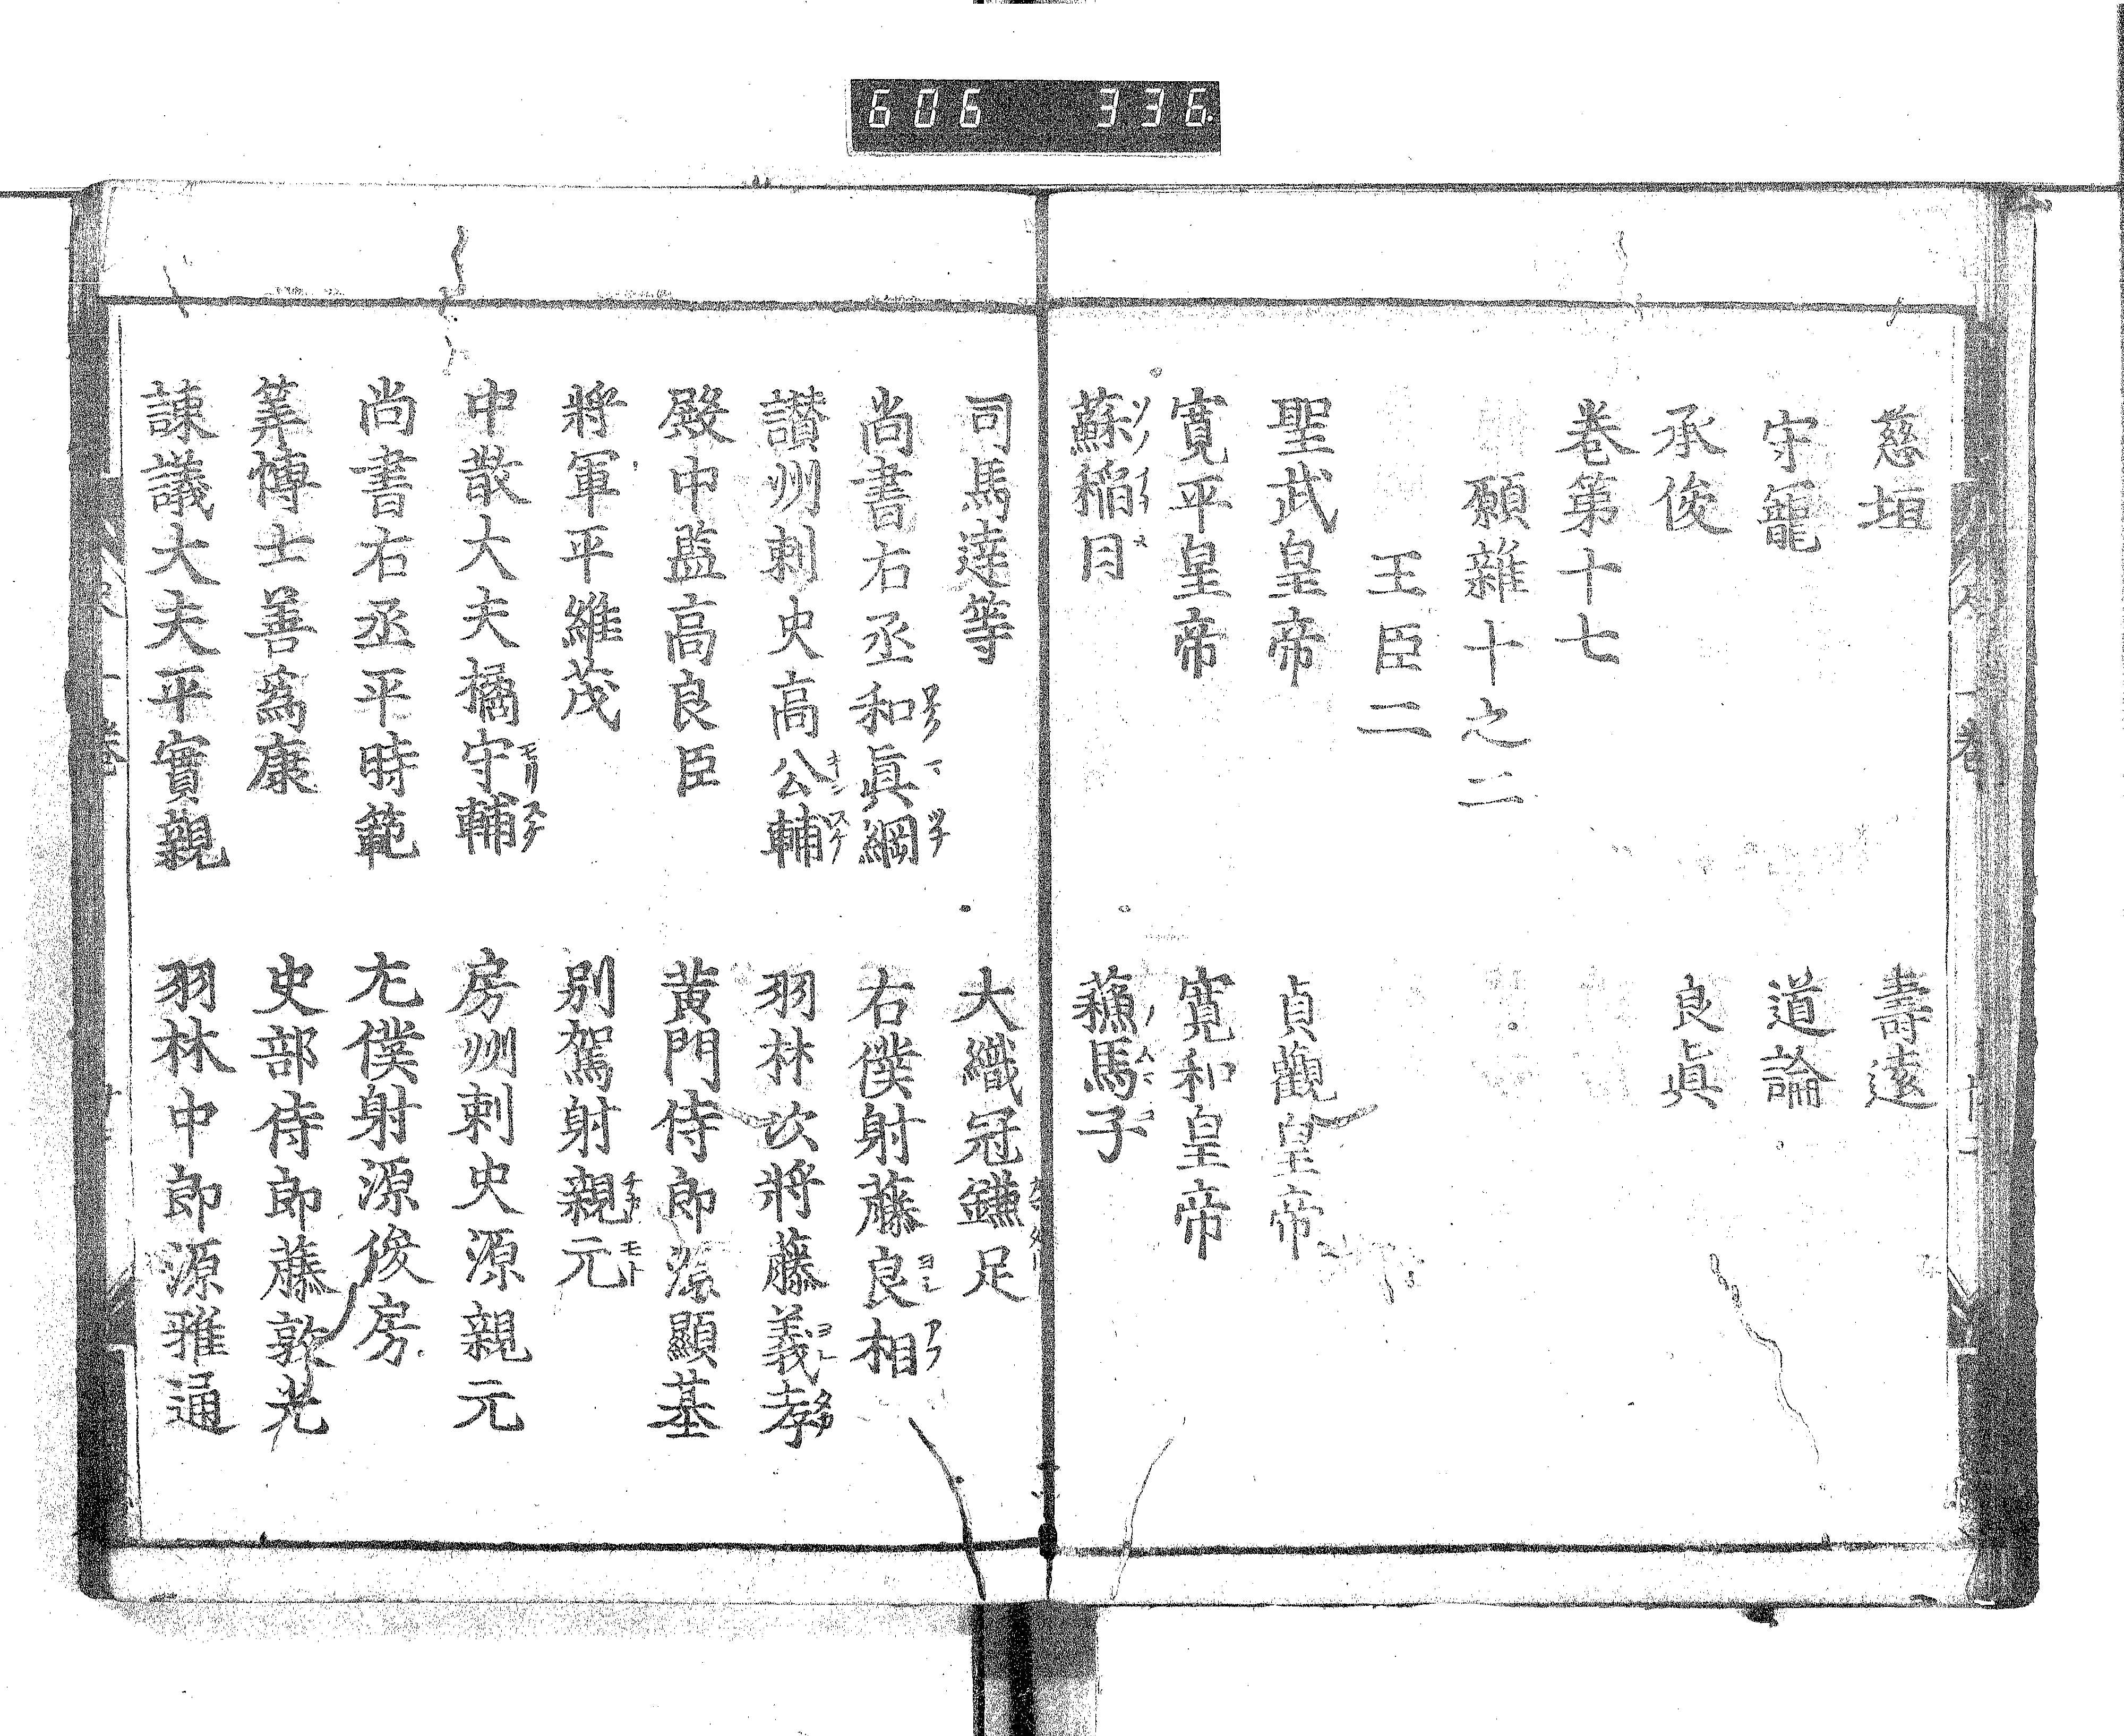 606 336
慈垣 壽遠
守籠 道論
承俊 良眞
卷第十七
願雜十之二
王臣二
聖武皇帝 貞觀皇帝
寬平皇帝 寬和皇帝
蘇稲目 蘓馬子
司馬達等 大織冠鎌足
尚書右丞和眞綱 右僕射藤良相
讃州刺史高公輔 羽林次將藤義孝
殿中監高良臣 黃門侍郎源顯基
將軍平維茂 別駕射親元
中散大夫橘守輔 房州刺史源親元
尚書右丞平時範 左僕射源俊房
筭博士善爲康 史部侍郎藤敦光
諫議大夫平實親 羽林中郎源雅通